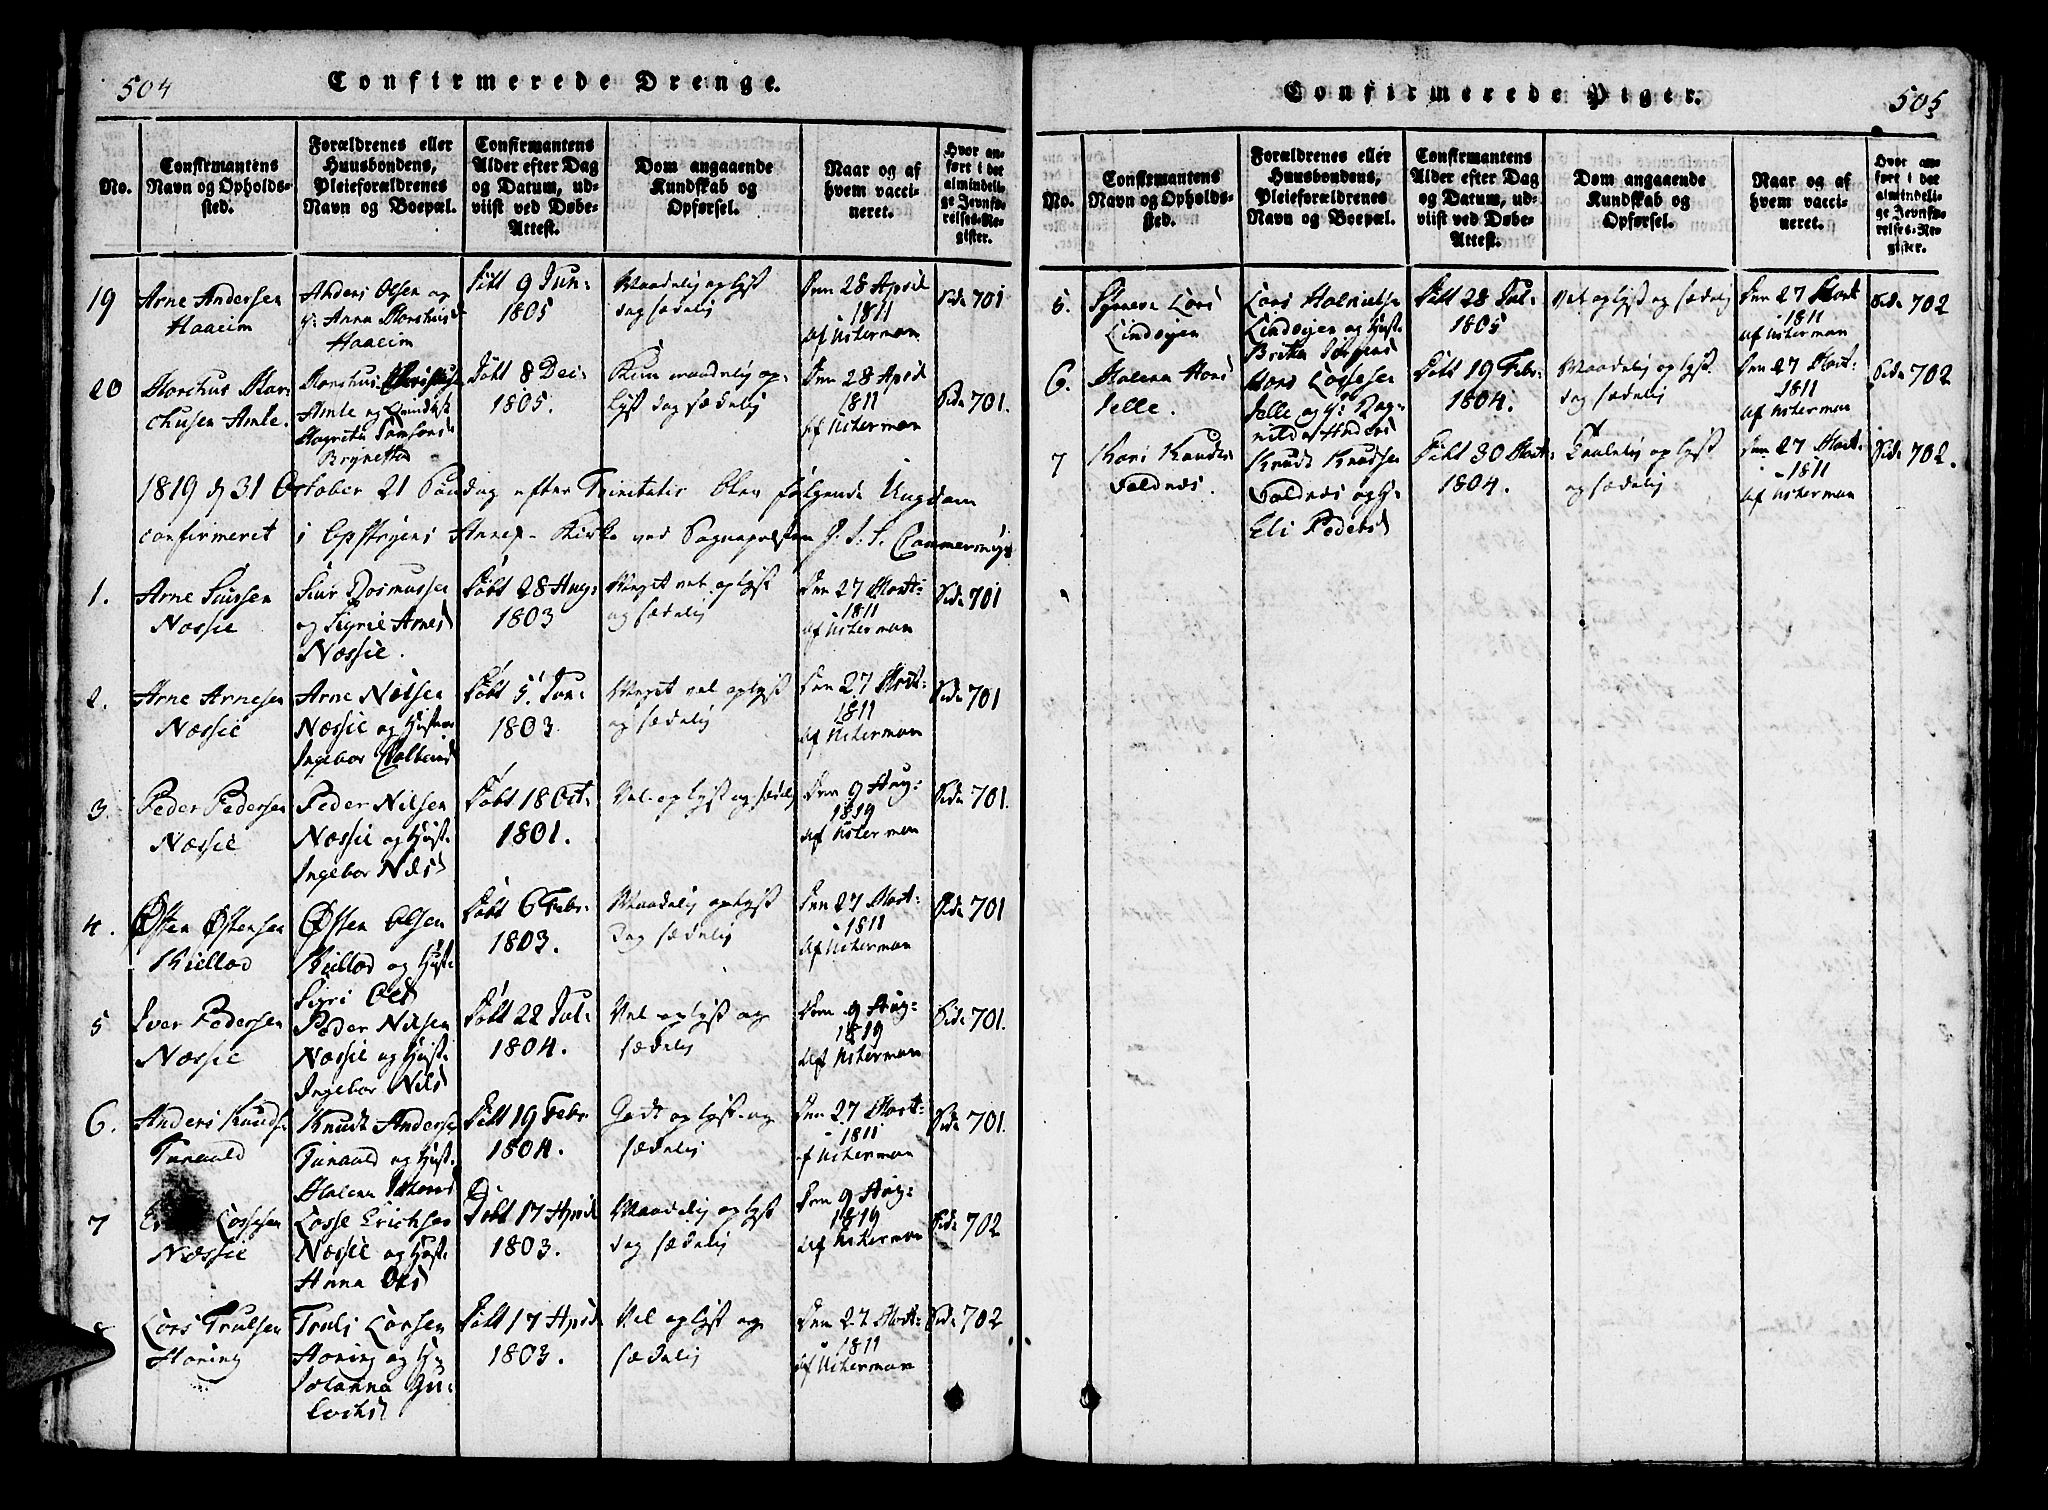 504
Confirmerede Drenge.
No.
Confirmantens
Navn og Opholds-
sted.
Forældrenes eller
Huusbondens,
Pleieforældrenes
Navn og Boepæl.
Confirmantens
Alder efter Dag
og Datum, ud-
viist ved Døbe-
Attest.
Dom angaaende
Kundskab og
Opførsel.
Naar og af
hvem vacci-
neret.
Hvor an-
ført i det
almindeli-
ge Jevnfø-
relses-Re-
gister.
19
Arne Andersen
Haaeim
Anders Olsen og
Anna
Haaeim
Døbt 9 Jun:
1805
Maadelig oplyst
dog sædelig
Den 28 April
1811
af Ucherman
Side 701
20
chusen Amle.
Amle og
Brynetta
Døbt 8 Dec:
1805.
Kun maadelig op-
lyst dog sædelig
Den 28 April
1811
af Ucherman
Side 701.
1819 d 31 October 21 Søndag efter Trinitatis blev følgende Ungdom
confirmeret i Opstryens Annex-Kirke ved Sognepræsten J. S. S. Cammermeyer
1.
Arne Siursen
Næssie
Siur Rasmussen
og Sigrie Arnesd
Næssie.
Døbt 28 Aug:
1803
Meget vel oplyst
og sædelig
Den 27 Mart:
1811
af Ucherman
Side 701
2.
Arne Arnesen
Næssie
Arne Nilsen
Næssie og Hustroe
Ingebor
Døbt 5. Jun:
1803
Meget vel oplyst
og sædelig
Den 27 Mart:
1811
af Ucherman
Side 701
3.
Peder Pedersen
Næssie
Peder Nilsen
Næssie og Hust:
Ingebor Nilsd
Døbt 18 Oct:
1801.
Vel oplyst og sædelig
Den 9 Aug:
1819
af Ucherman
Side 701.
4.
Østen Østensen
Kiellod
Østen Olsen
Kiellod og Hust:
Sigri Olsd
Døbt 6 Febr:
1803.
Maadelig oplyst
dog sædelig
Den 27 Mart:
1811
af Ucherman
Side 701
5
Iver Pedersen
Næssie
Peder Nilsen
Næssie og Hust:
Ingebor Nilsd
Døbt 22 Jul:
1804.
Vel oplyst og
sædelig
Den 9 Aug:
1819
af Ucherman
Side 701.
6.
Anders Knuds:
Tunauld
Knudt Anderse
Tunauld og Hust:
Malena
Døbt 19 Febr
1804.
Godt oplyst og
sædelig
Den 27 Mart:
1811
af Ucherman
Side 701.
7
Lassesen
Næssie
Lasse Erichsen
Næssie og Hust:
Anna Olsd
Døbt 17 April
1803.
Maadelig oplyst
dog sædelig
Den 9 Aug:
1819
af Ucherman
Side 702
8
Lars Trulsen
Honing
Truls Larsen
Honing og H:
Johanna Gu-
Døbt 17 April
1803.
Vel oplyst og
sædelig
Den 27 Mart:
1811
af Ucherman
Side 702
505
Confirmerede Piger.
No.
Confirmantens
Navn og Opholds-
sted.
Forældrenes eller
Huusbondens,
Pleieforældrenes
Navn og Boepæl.
Confirmantens
Alder efter Dag
og Datum, ud-
viist ved Døbe-
Attest.
Dom angaaende
Kundskab og
Opførsel.
Naar og af
hvem vacci-
neret.
Hvor an-
ført i det
almindeli-
ge Jevnfø-
relses-Re-
gister.
5.
Synneva Lars
Lindvigen
Lars
Lindvigen og Hust:
Britha
Døbt 28 Jul:
1805
Vel oplyst og sædelig
Den 27 Mart
1811
af Ucherman
Side 702
6.
Malena Mons
Jelle.
Mons Lassesen
Jelle og H: Rag-
nilda Andersd
Døbt 19 Febr:
1804.
Maadelig oplyst
dog sædelig
Den 27 Mart:
1811
af Ucherman
Side 702
7
Kari Knuds
Foldnæs.
Knudt Knudsen
Foldnæs og H:
Eli Pedersd
Døbt 30 Mart:
1804.
Taalelig oplyst
og sædelig
Den 27 Mart:
1811
af Ucherman
Side 702.